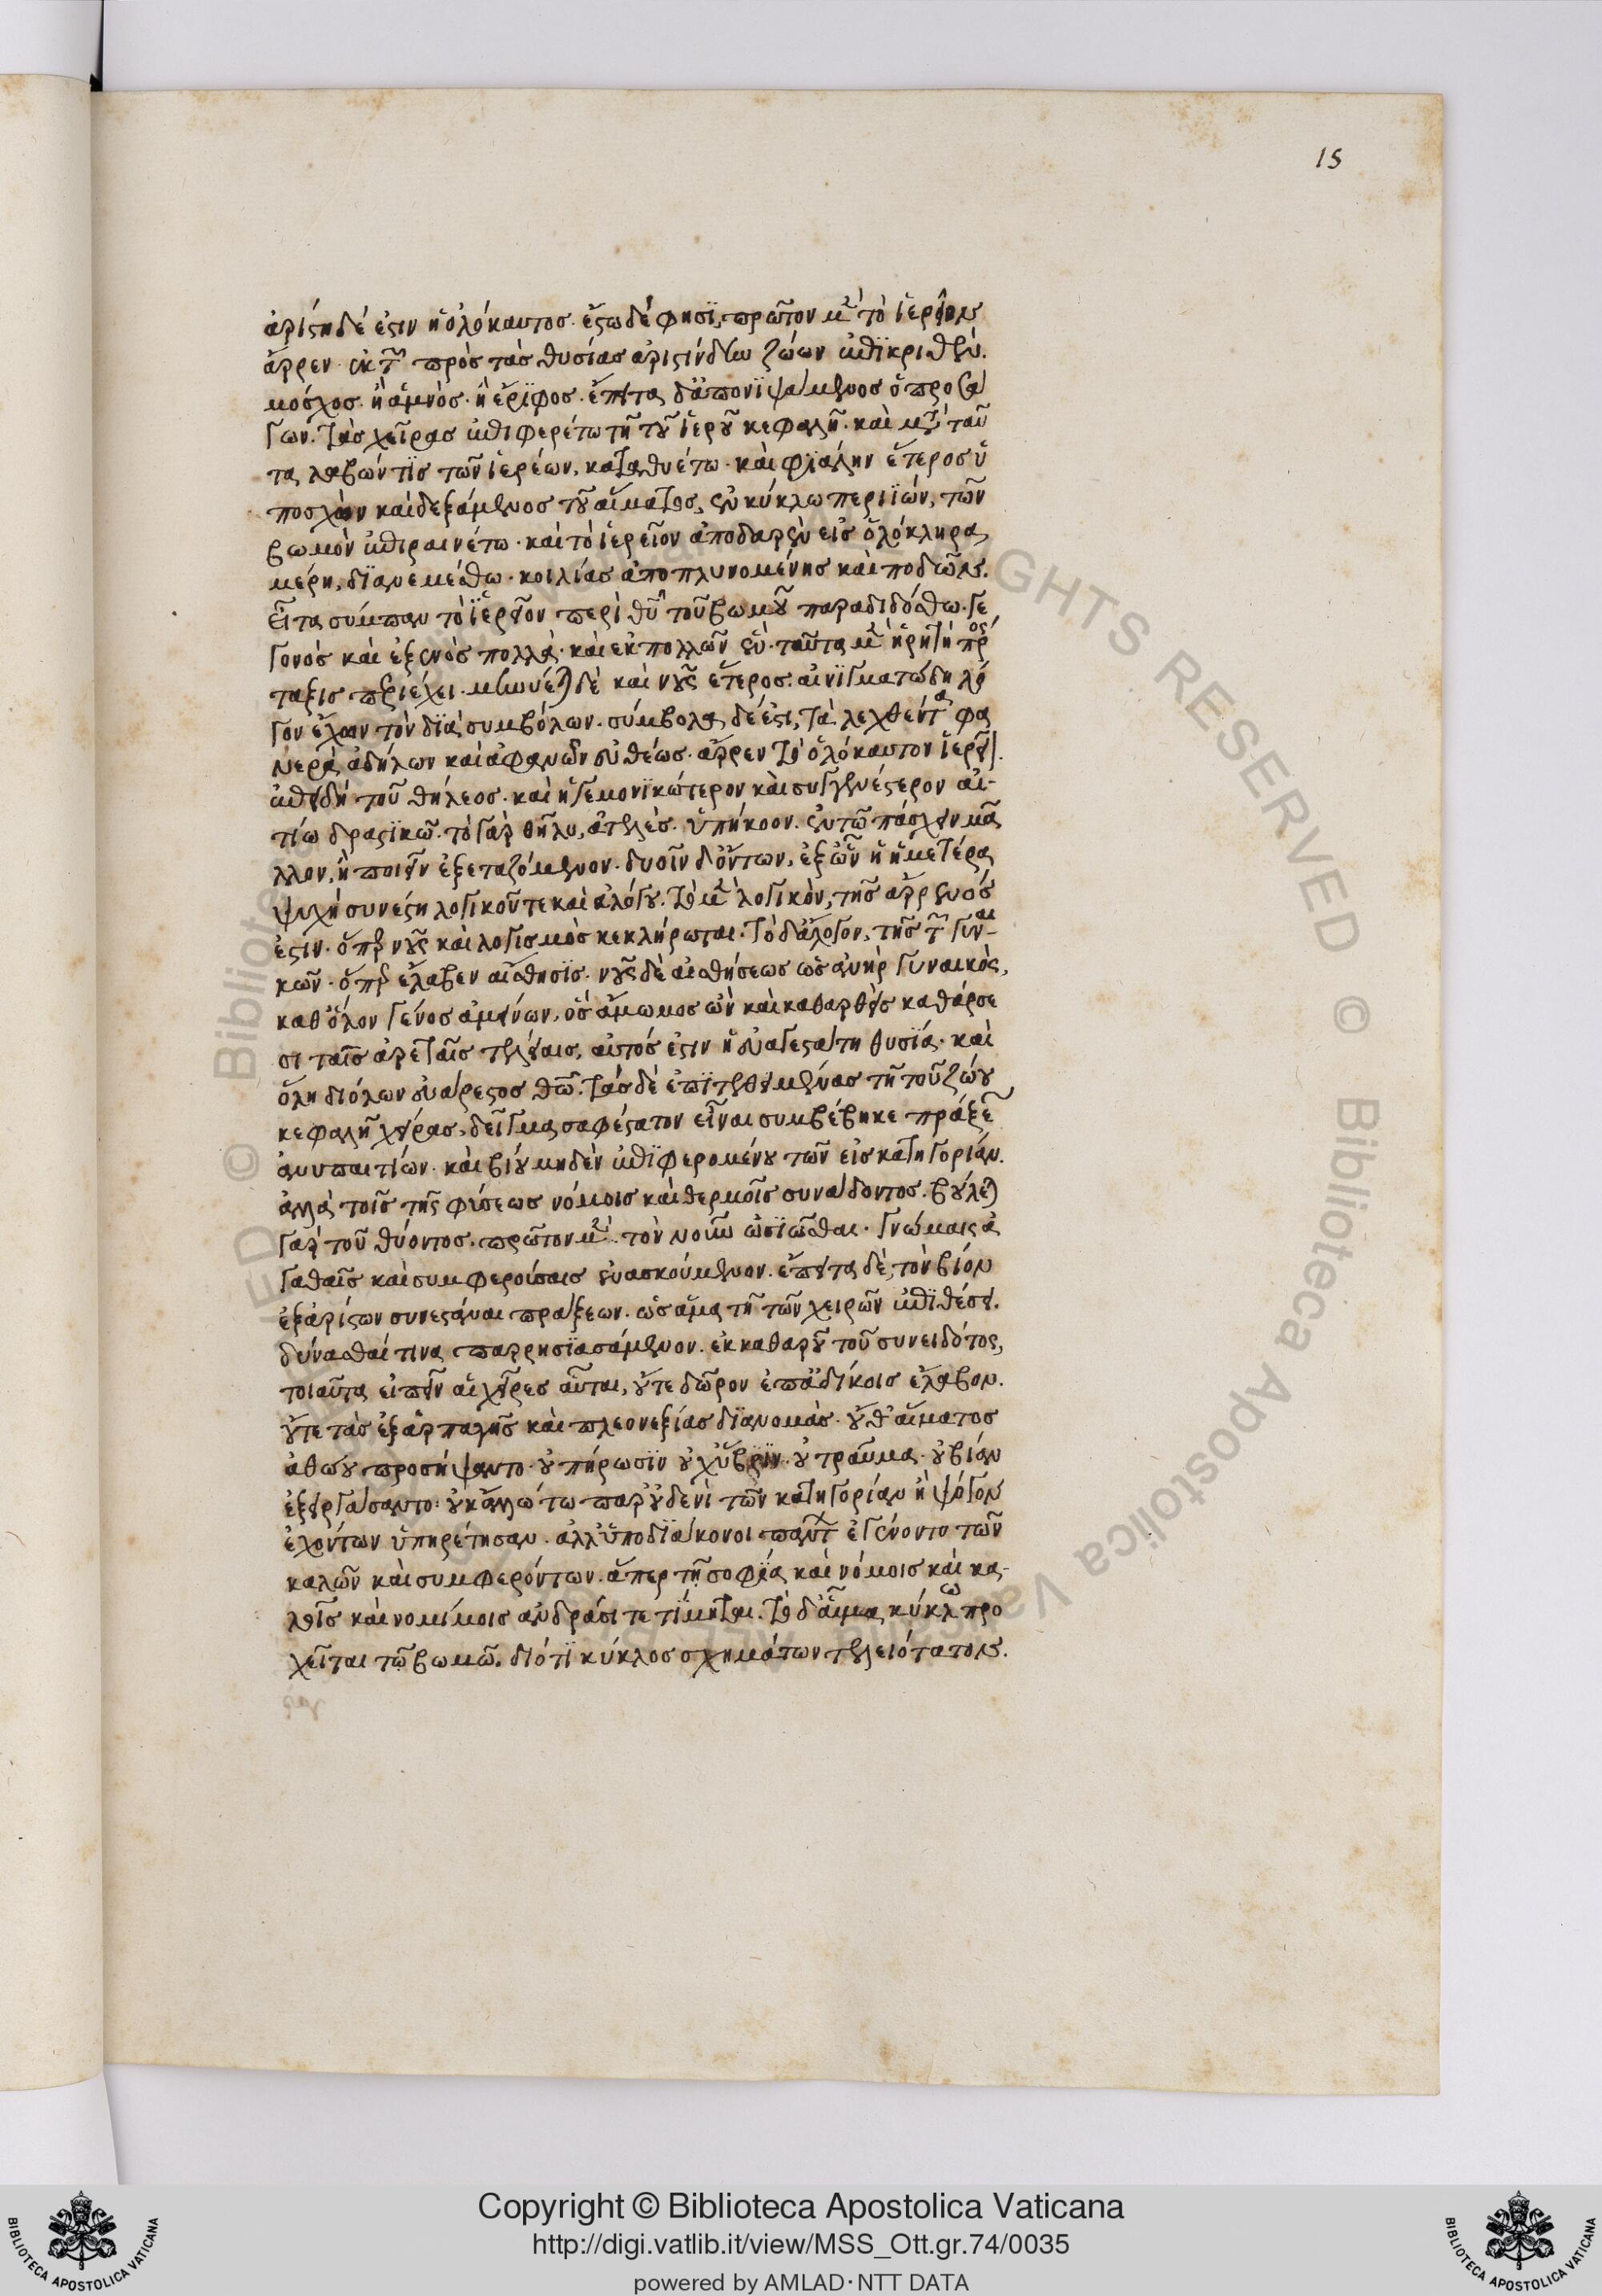 15
ἀρίστη δέ ἐστιν ἡ ὁλόκαυτος. ἔστω δέ φησϊ, πρῶτον μὲν τὸ ἱερεῖον
ἄρρεν ἐκ τῶν πρὸς τὰς θυσίας ἀριστίνδην ζώων ἐπϊκριθέν.
μόσχος. ἢ ἀμνὸς. ἢ ἔρϊφος. ἔπειτα δ' ἀπονϊψάμενος ὁ προσα
γων. τὰς χεῖρας ἐπιφερέτω τῆ τοῦ ἱερείου κεφαλῆ. καὶ μετὰ ταῦ
τα λαβών τϊς τῶν ἱερέων, καταθυέτω. καὶ φϊάλην ἕτερος ὑ
ποσχὼν καὶ δεξάμενος τοῦ αἵματος, ἐν κύκλω περιϊών, τῶν
βωμὸν ἐπιραινέτω. καὶ τὸ ἱερεῖον ἀποδαρὲν εἰς ὁλόκληρα
μέρη, δϊανεμέσθω. κοιλίας ἀποπλυνομένης καὶ ποδῶν.
εἶτα σύμπαν τὸ ἱερεῖον περὶ θεοῦ τοῦ βωμοῦ παραδιδόσθω. γε
γονὸς καὶ ἐξ ἑνὸς πολλὰ. καὶ ἐκ πολλῶν ἕν. ταῦτα μὲν ἡ ῥητὴ πρόσ
ταξις περιέχει. μηνύεται δὲ καὶ νοῦς ἕτερος. αἰνϊγματώδη λό
γον ἔχων τὸν δϊὰ συμβόλων. σύμβολα δέ ἐστι, τὰ λεχθέντα φα
νερὰ ἀδήλων καὶ ἀφανῶν εὐθέως. ἄρρεν τὸ ὁλόκαυτον ἱερεῖον.
ἐπειδὴ τοῦ θήλεος. καὶ ἡγεμονϊκώτερον καὶ συγγενέστερον αἰ-
τίω δραστϊκῶ. τὸ γὰρ θῆλυ, ἀτελὲς. ὑπήκοον. ἐν τῶ πάσχειν μᾶ
λλον, ἢ ποιεῖν ἐξεταζόμενον. δυοῖν δ' ὄντων, ἐξ ὧν ἡ ἡμετέρα
ψυχὴ συνέστη λογικοῦ τε καὶ ἀλόγου. τὸ μὲν λογικὸν, τῆς ἄρρενός
ἐστιν. ὅπερ νοῦς καὶ λογισμὸς κεκλήρωται. τὸ δ' ἄλογον, τῆς τῶν γυναι-
κῶν. ὅπερ ἔλαβεν αἴσθησϊς. νοῦς δὲ αἰσθήσεως ὡς ἀνὴρ γυναικὸς,
καθ' ὅλον γένος ἀμείνων, ὃς ἄμωμος ὢν καὶ καθαρθεὶς καθάρσε
σι ταῖς ἀρεταῖς τελείαις, αὐτός ἐστιν ἡ εὐαγεστάτη θυσϊά. καὶ
ὅλη δι' ὅλων εὐάρεστος θεῶ. τὰς δὲ ἐπϊτεθειμένας τῆ τοῦ ζώου
κεφαλῆ χεῖρας, δεῖγμα σαφέστατον εἶναι συμβέβηκε πράξε
ἀνυπαιτίων. καὶ βίου μηδὲν ἐπϊφερομένου τῶν εἰς κατηγορίαν.
ἀλλὰ τοῖς τῆς φύσεως νόμοις καὶ θερμοῖς συνάδοντος. βούλεται
γὰρ τοῦ θύοντος. πρῶτον μὲν. τὸν νοῦν ὡσϊῶσθαι. γνώμαις ἀ
γαθαῖς καὶ συμφερούσαις ἐνασκούμενον. ἔπειτα δὲ, τὸν βίον
ἐξ ἀρίστων συνεστάναι πράξεων. ὡς ἅμα τῆ τῶν χειρῶν ἐπϊθέσει.
δύνασθαί τινα παρρησϊασάμενον. ἐκ καθαροῦ τοῦ συνειδότος,
τοιαῦτα εἰπεῖν αἱ χεῖρες αὗται, οὔτε δῶρον ἐπ' ἀδίκοις ἔλαβον.
οὔτε τὰς ἐξ ἁρπαγῆς καὶ πλεονεξίας δϊανομάς. οὔθ' αἵματος
ἀθώου προσήψαντο. οὐ πήρωσϊν οὐχ ὕβρϊν. οὐ τραῦμα. οὐ βίαν
ἐξειργάσαντο. οὐκ ἄλλω τω παρ' οὐδενὶ τῶν κατηγορίαν ἢ ψόγον
ἐχόντων ὑπηρέτησαν. ἀλλ' ὑποδϊάκονοι πάντων ἐγένοντο τῶν
καλῶν καὶ συμφερόντων. ἅπερ τῆ σοφϊα καὶ νόμοις καὶ κα-
λοῖς καὶ νομίμοις ἀνδράσι τετϊμηται. τὸ δ' αἷμα κύκλω προ
χεῖται τῶ βωμῶ. διότϊ κύκλος σχημάτων τελειότατον.
Copyright © Biblioteca Apostolica Vaticana
http://digi.vatlib.it/view/MSS_Ott.gr.74/0035
powered by AMLAD·NTT DATA